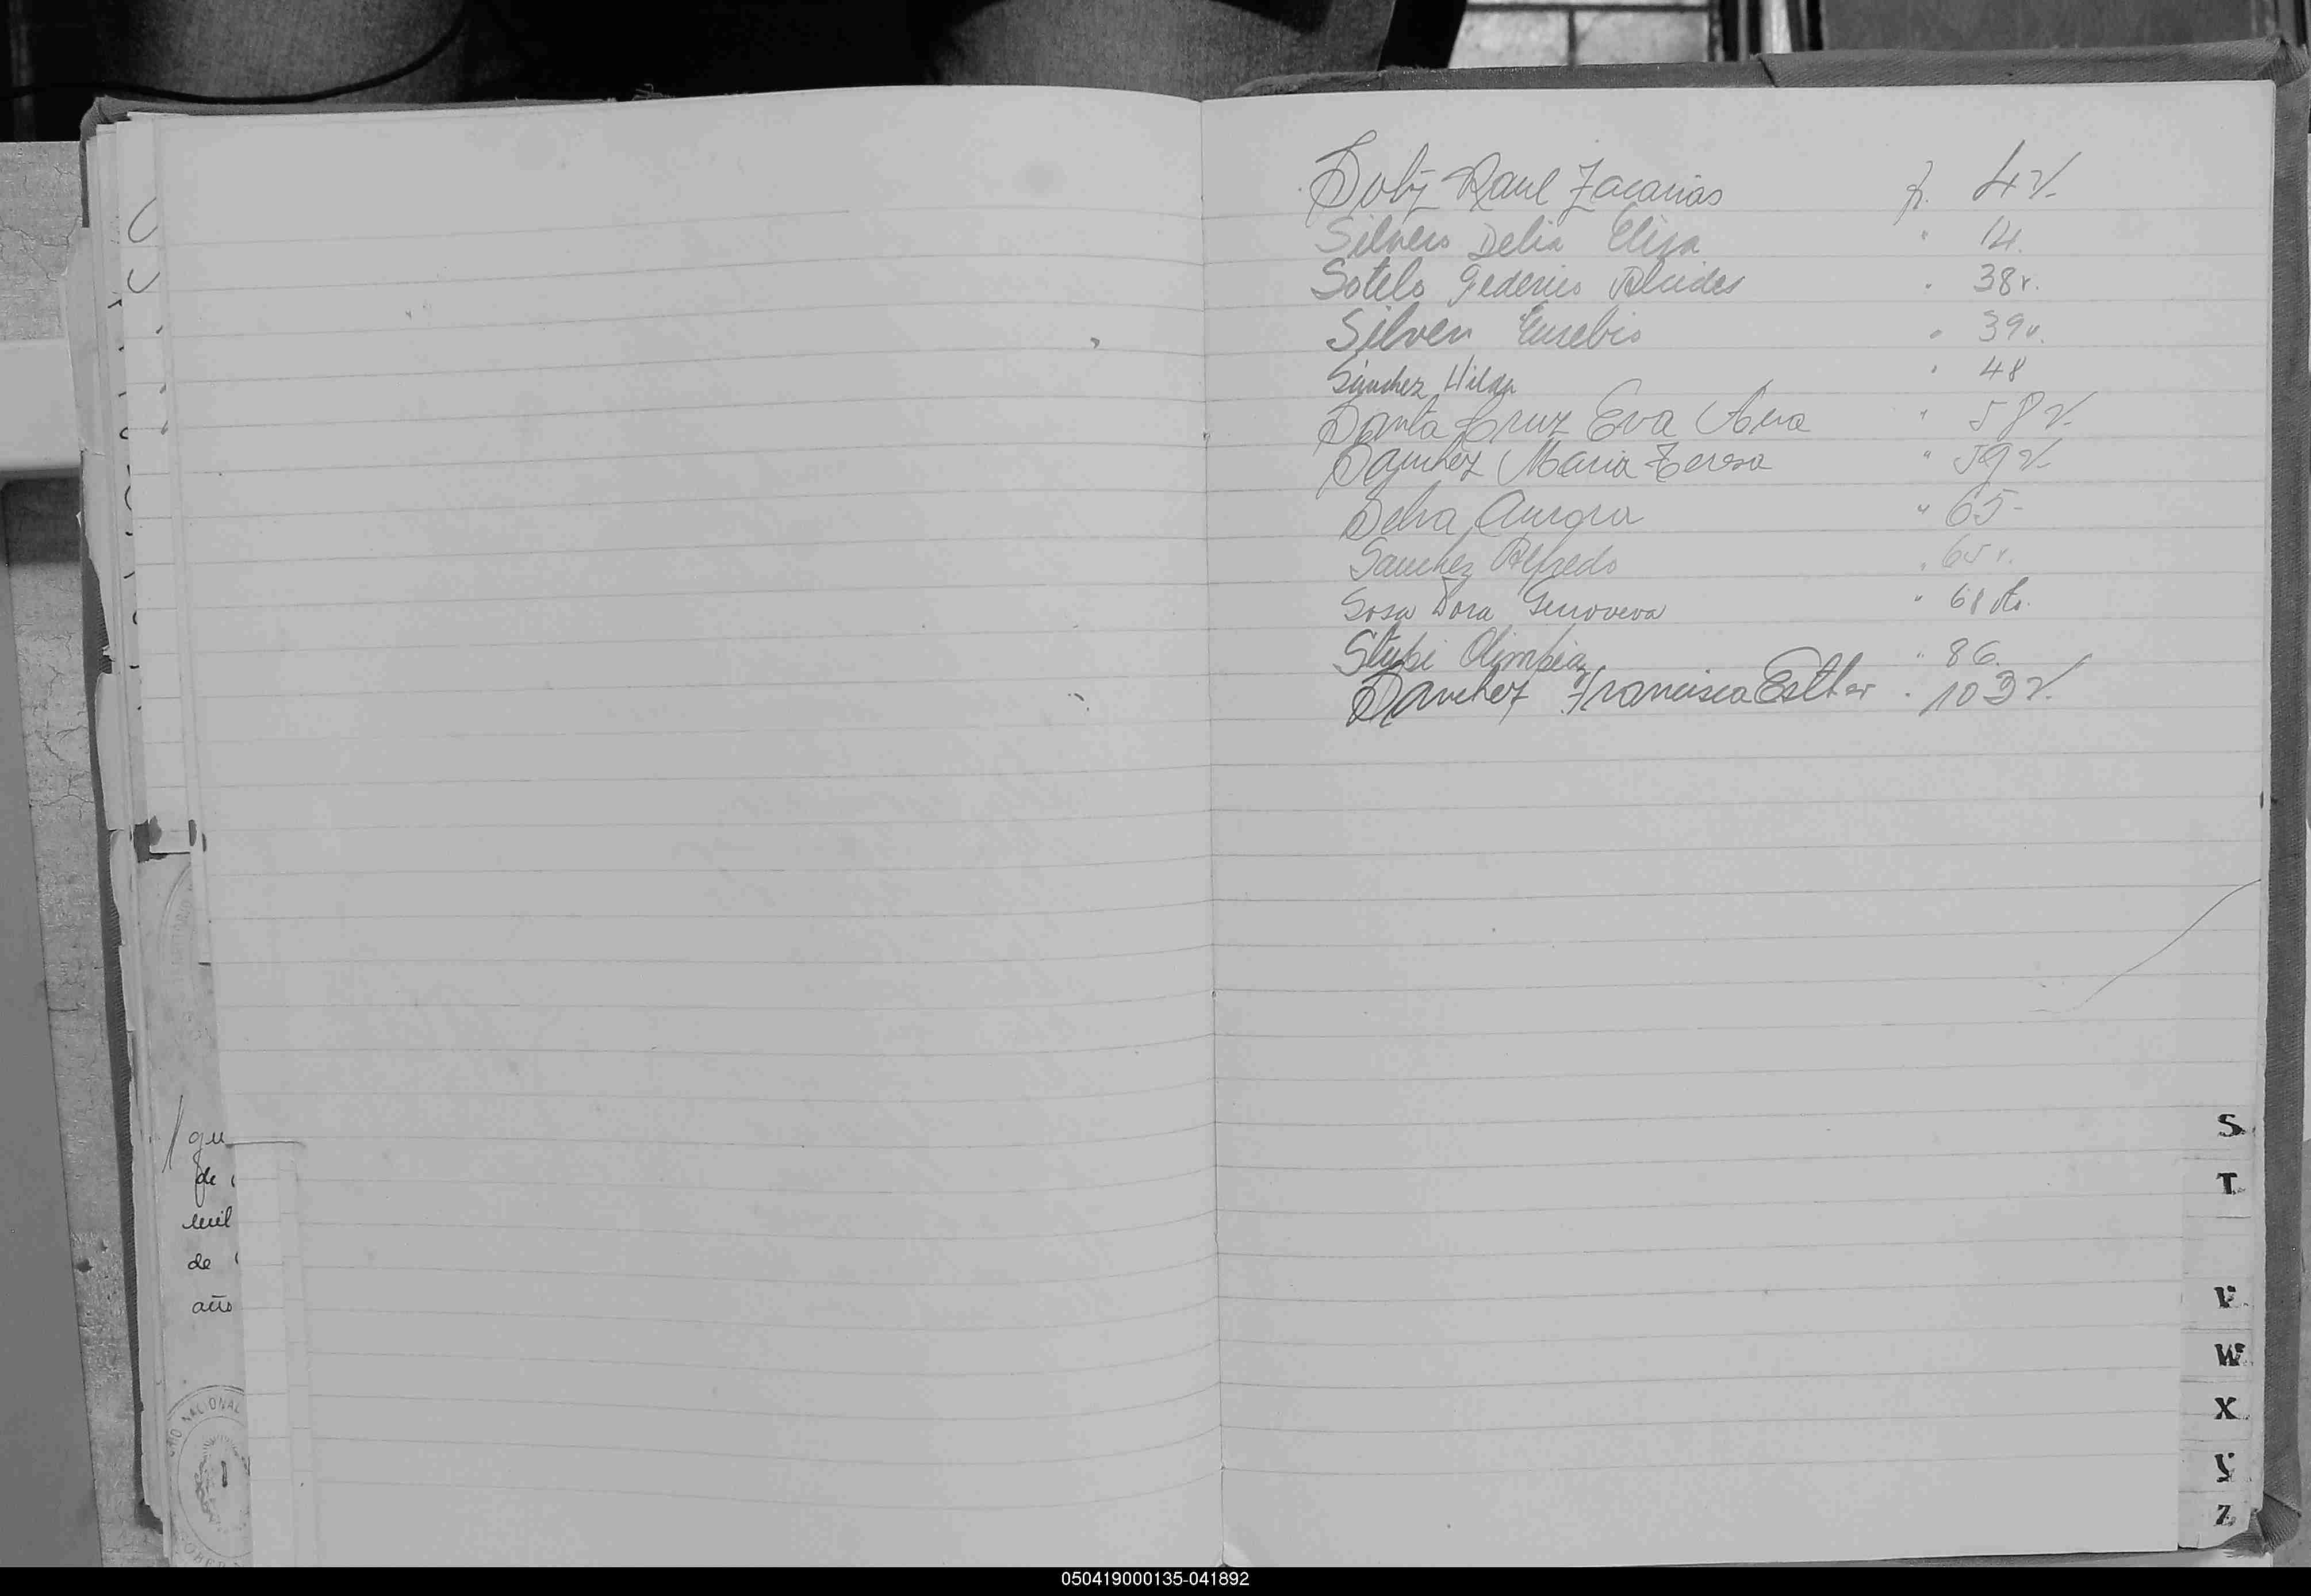 qu
de
mil
de
año
NACIONAL
Raul Zacarias f. 4 v.
Silvero Delia Elisa " 14.
Sotelo Federico Alcides " 38 v.
Silven Eusebio " 39 v.
Sánchez Hilda " 48
Santa Cruz Eva Ana " 58 v.
Sánchez Maria Teresa " 59 v.
Selva Aurora " 65-
Sanchez Alfredo " 65 v.
Sosa Dora Genoveva " 68 vto.
Stubi Olimpia " 86.
Sanchez Francisca Esther " 103 v.
S
T
V
W
X
Y
Z
050419000135-041892